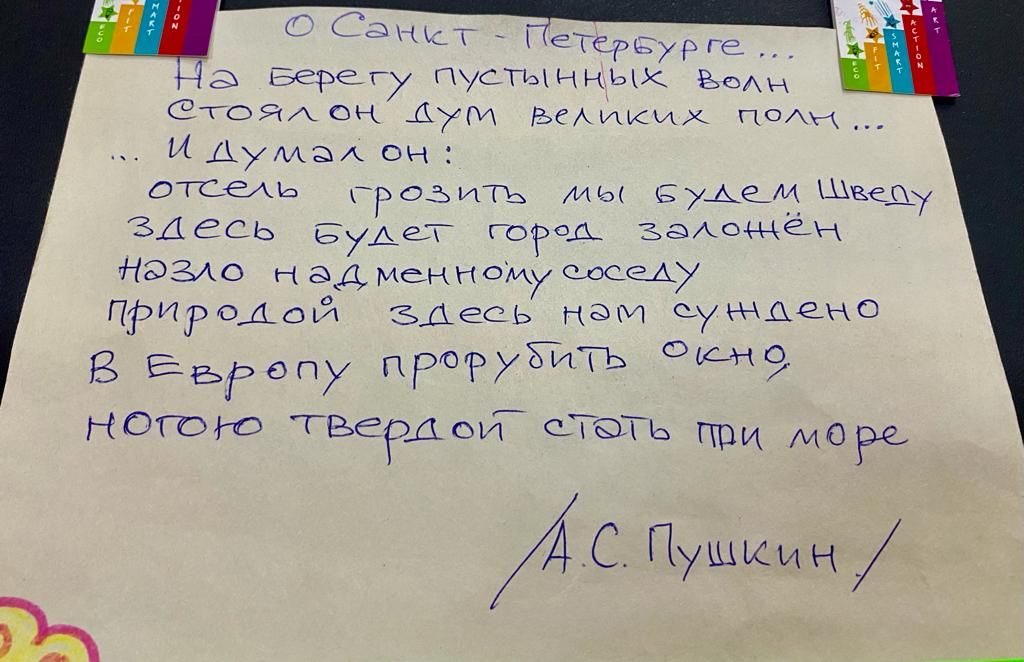 О Санкт-Петербурге...
На берегу пустынных волн
стоял он дум великих полн...
... И думал он:
отсель грозить мы будем Шведу
здесь будет город заложён
назло надменному соседу
природой здесь нам суждено
В Европу прорубить окно,
ногою твердой стать при море
/А.С. Пушкин./
ECO
FIT
SMART
ACTION
ECO
FIT
SMART
ACTION
ART